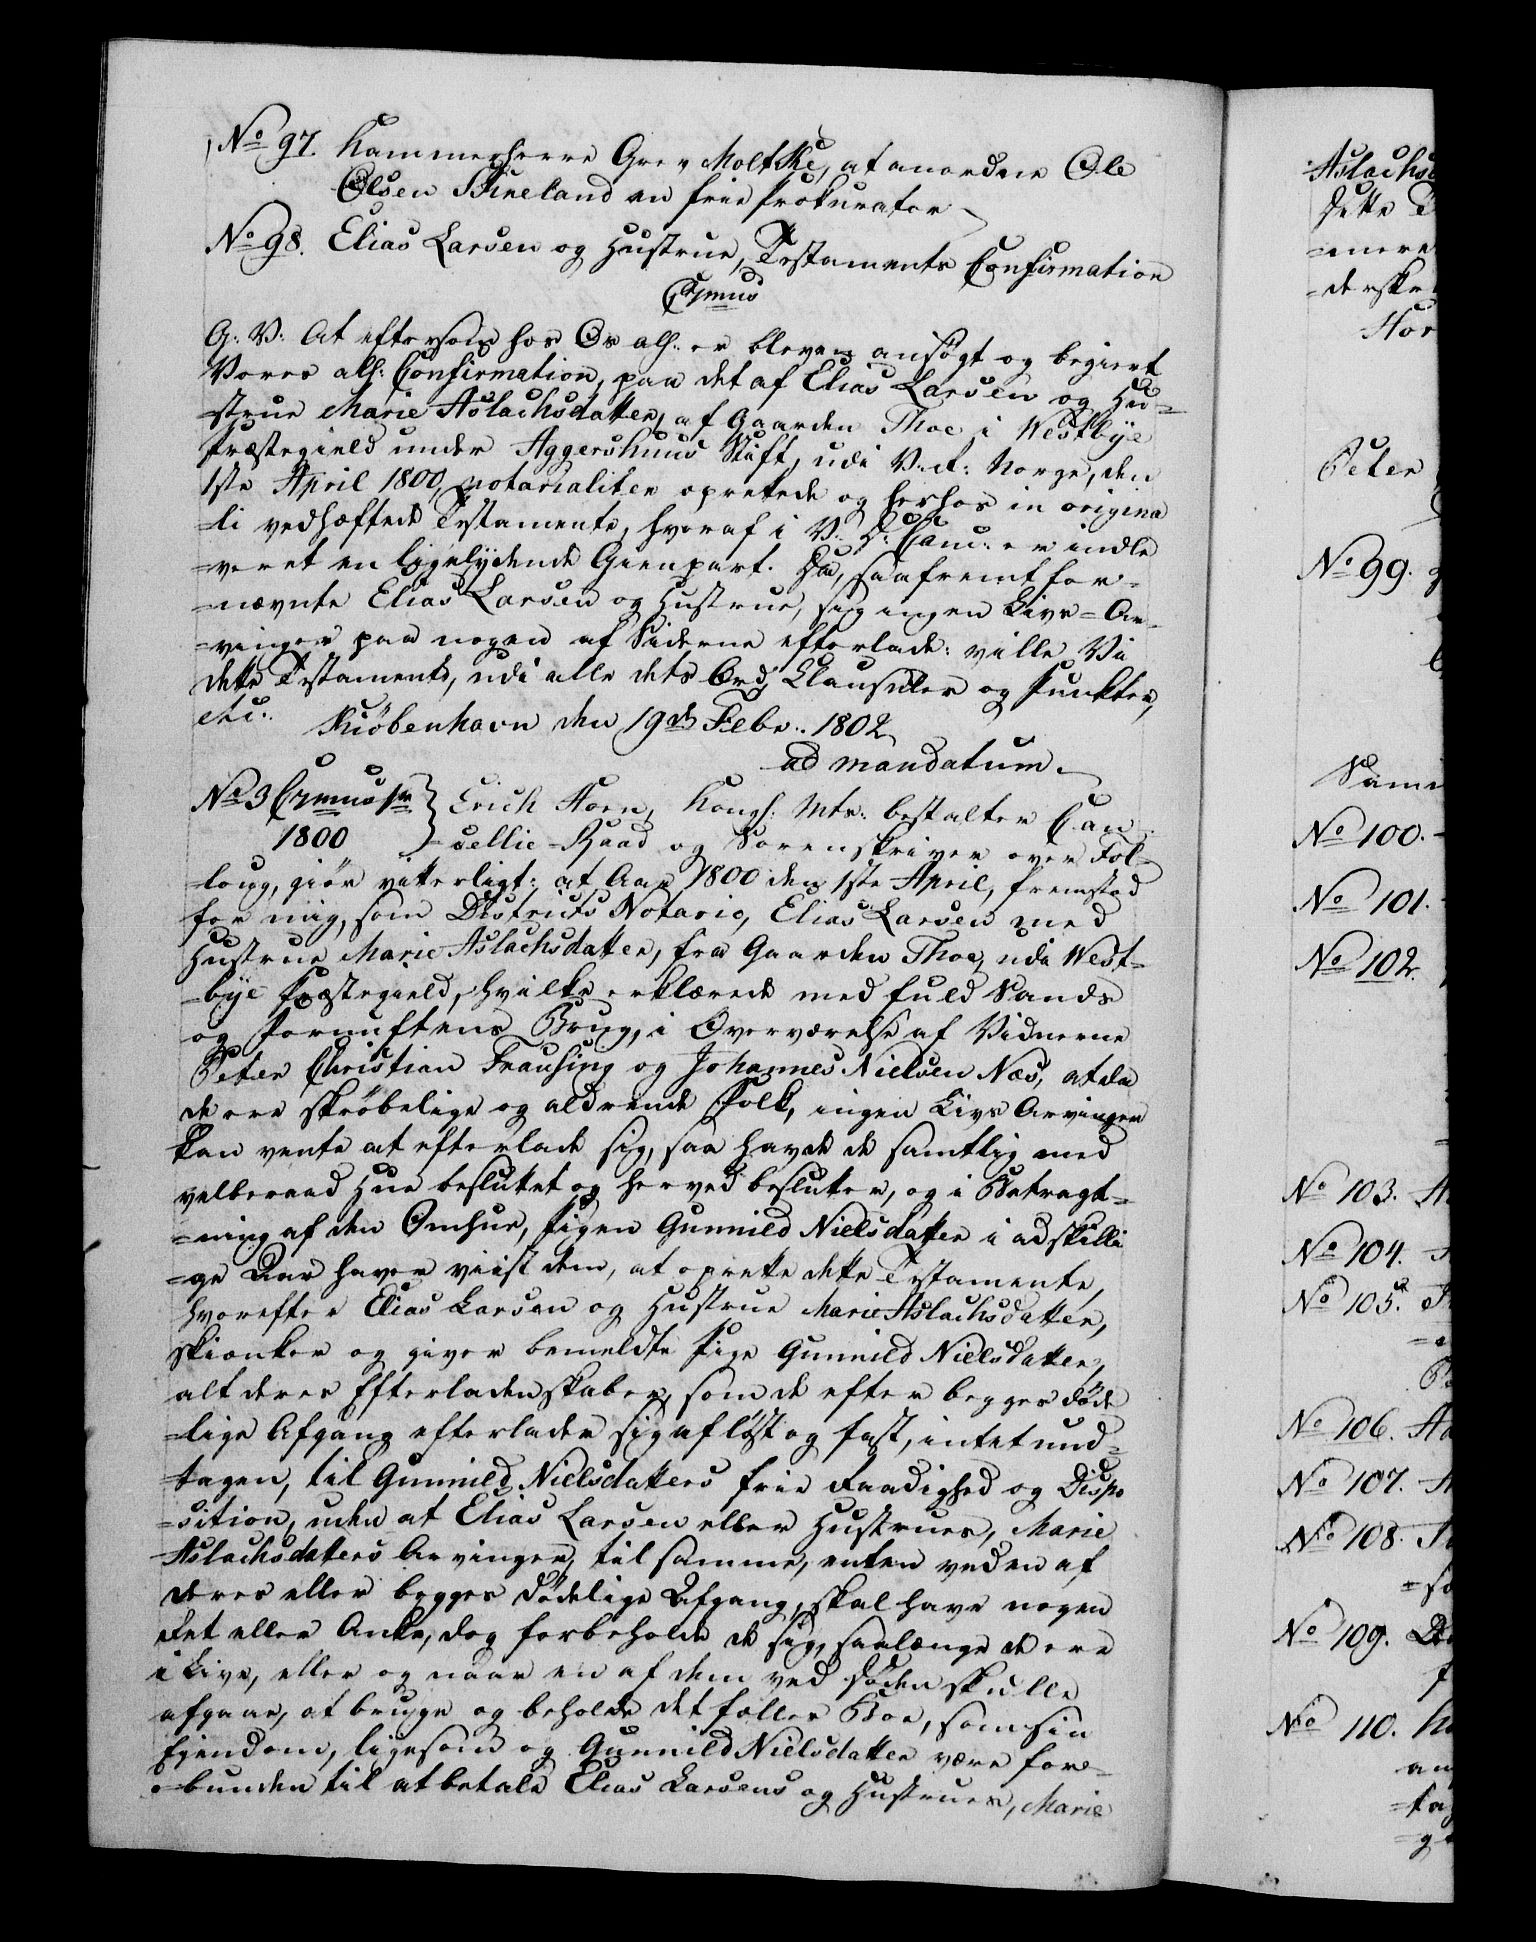 No 97. Kammerherre Grev Moltke, at anordne Ole
Olsen Skreland en frie Prokurator
No 98. Elias Larsen og Hustrue, Testaments Confirmation
Cr^mus
G: V: At eftersom hos Os all: er bleven ansøgt og begiert
Vores all: Confirmation, paa det af Elias Larsen og Hu=
=strue Marie Aslachsdatter, af Gaarden Thoe i Westbÿe
Præstegield under Aggershuus Stift, udi V: R: Norge, den
1ste April 1800, notarialiter oprettede og herhos in origina
=li vedhæftede Testamente, hvoraf i V: D: Canc: er indle
=veret en ligelÿdende Gienpart. Da, saafremt for=
=nævnte Elias Larsen og Hustrue, sig ingen Livs=Ar=
=vinger paa nogen af Siderne efterlade: ville Vi
dette Testamente, udi alle dets Ord, Clausuler og Punkter,
etc:
Kiöbenhavn den 19de Febr: 1802
ad mandatum.
No 3 Cr^mus 1m
1800
Erich Horn, Kongl: Mts: bestalter Can
=cellie-Raad og Sorenskriver over Fol=
=loug, giör vitterligt: at Aar 1800 den 1ste April, fremstod
for mig, som Districts Notario, Elias Larsen med
Hustrue Marie Aslachsdatter, fra Gaarden Thoe, udi West=
=bÿe Præstegield, hvilke erklærede med fuld Sands
og Fornuftens Brug, i Overværelse af Vidnerne
Peter Christian Frausing og Johannes Nielsen Næs, at da
de ere skröbelige og aldrende Folk, ingen Livs Arvinger
kan vente at efterlade sig, saa havde de samtlig med
velberaad Hue besluttet og herved beslutter, og i Betragt=
=ning af den Omhue, Pigen Gunnild Nielsdatter i adskilli
=ge Aar haver viist dem, at oprette dette Testamente,
hvorefter Elias Larsen og Hustrue Marie Aslachsdatter,
skienker og giver bemeldte Pige Gunnild Nielsdatter,
alt deres Efterladenskaber, som de efter begges döde
=lige Afgang efterlader sig af löst og fast, intet und=
=tagen, til Gunnild Nielsdatters frie Raadighed og Dispo
=sition, uden at Elias Larsen eller Hustrues, Marie
Aslachsdatters Arvinger, til samme, enten ved en af
deres eller begges dödelige Afgang, skal have nogen
Ret eller Anke, dog forbeholde de sig, saalænge de ere
i Live, eller og naar en af dem ved Döden skulle
afgaae, at bruge og beholde det fælles Boe, som sin
Ejendom, ligesom og Gunnild Nielsdatter være for=
=bunden til at betale Elias Larsens og Hustrues, Marie
Aslachs
dette
=mere
Peter
No 99.
No 100.
No 101.
No 102.
No 103.
No 104.
No 105.
No 106.
No 107.
No 108.
No 109.
No 110.